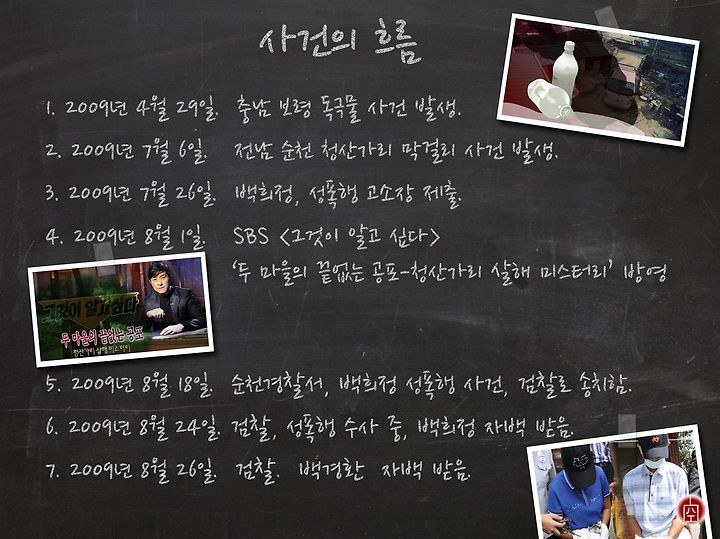 사건의 흐름
1. 2009년 4월 29일. 충남 보령 독극물 사건 발생.
2. 2009년 7월 6일. 전남 순천 청산가리 막걸리 사건 발생.
3. 2009년 7월 26일. 백희정, 성폭행 고소장 제출.
4. 2009년 8월 1일. SBS <그것이 알고 싶다>
'두 마을의 끝없는 공포-청산가리 살해 미스터리' 방영
그것이 알고싶다
두 마을의 끝없는 공포
청산가리 살해 미스터리
5. 2009년 8월 18일. 순천경찰서, 백희정 성폭행 사건, 검찰로 송치함.
6. 2009년 8월 24일. 검찰, 성폭행 수사 중, 백희정 자백 받음.
7. 2009년 8월 26일. 검찰. 백경환 자백 받음.